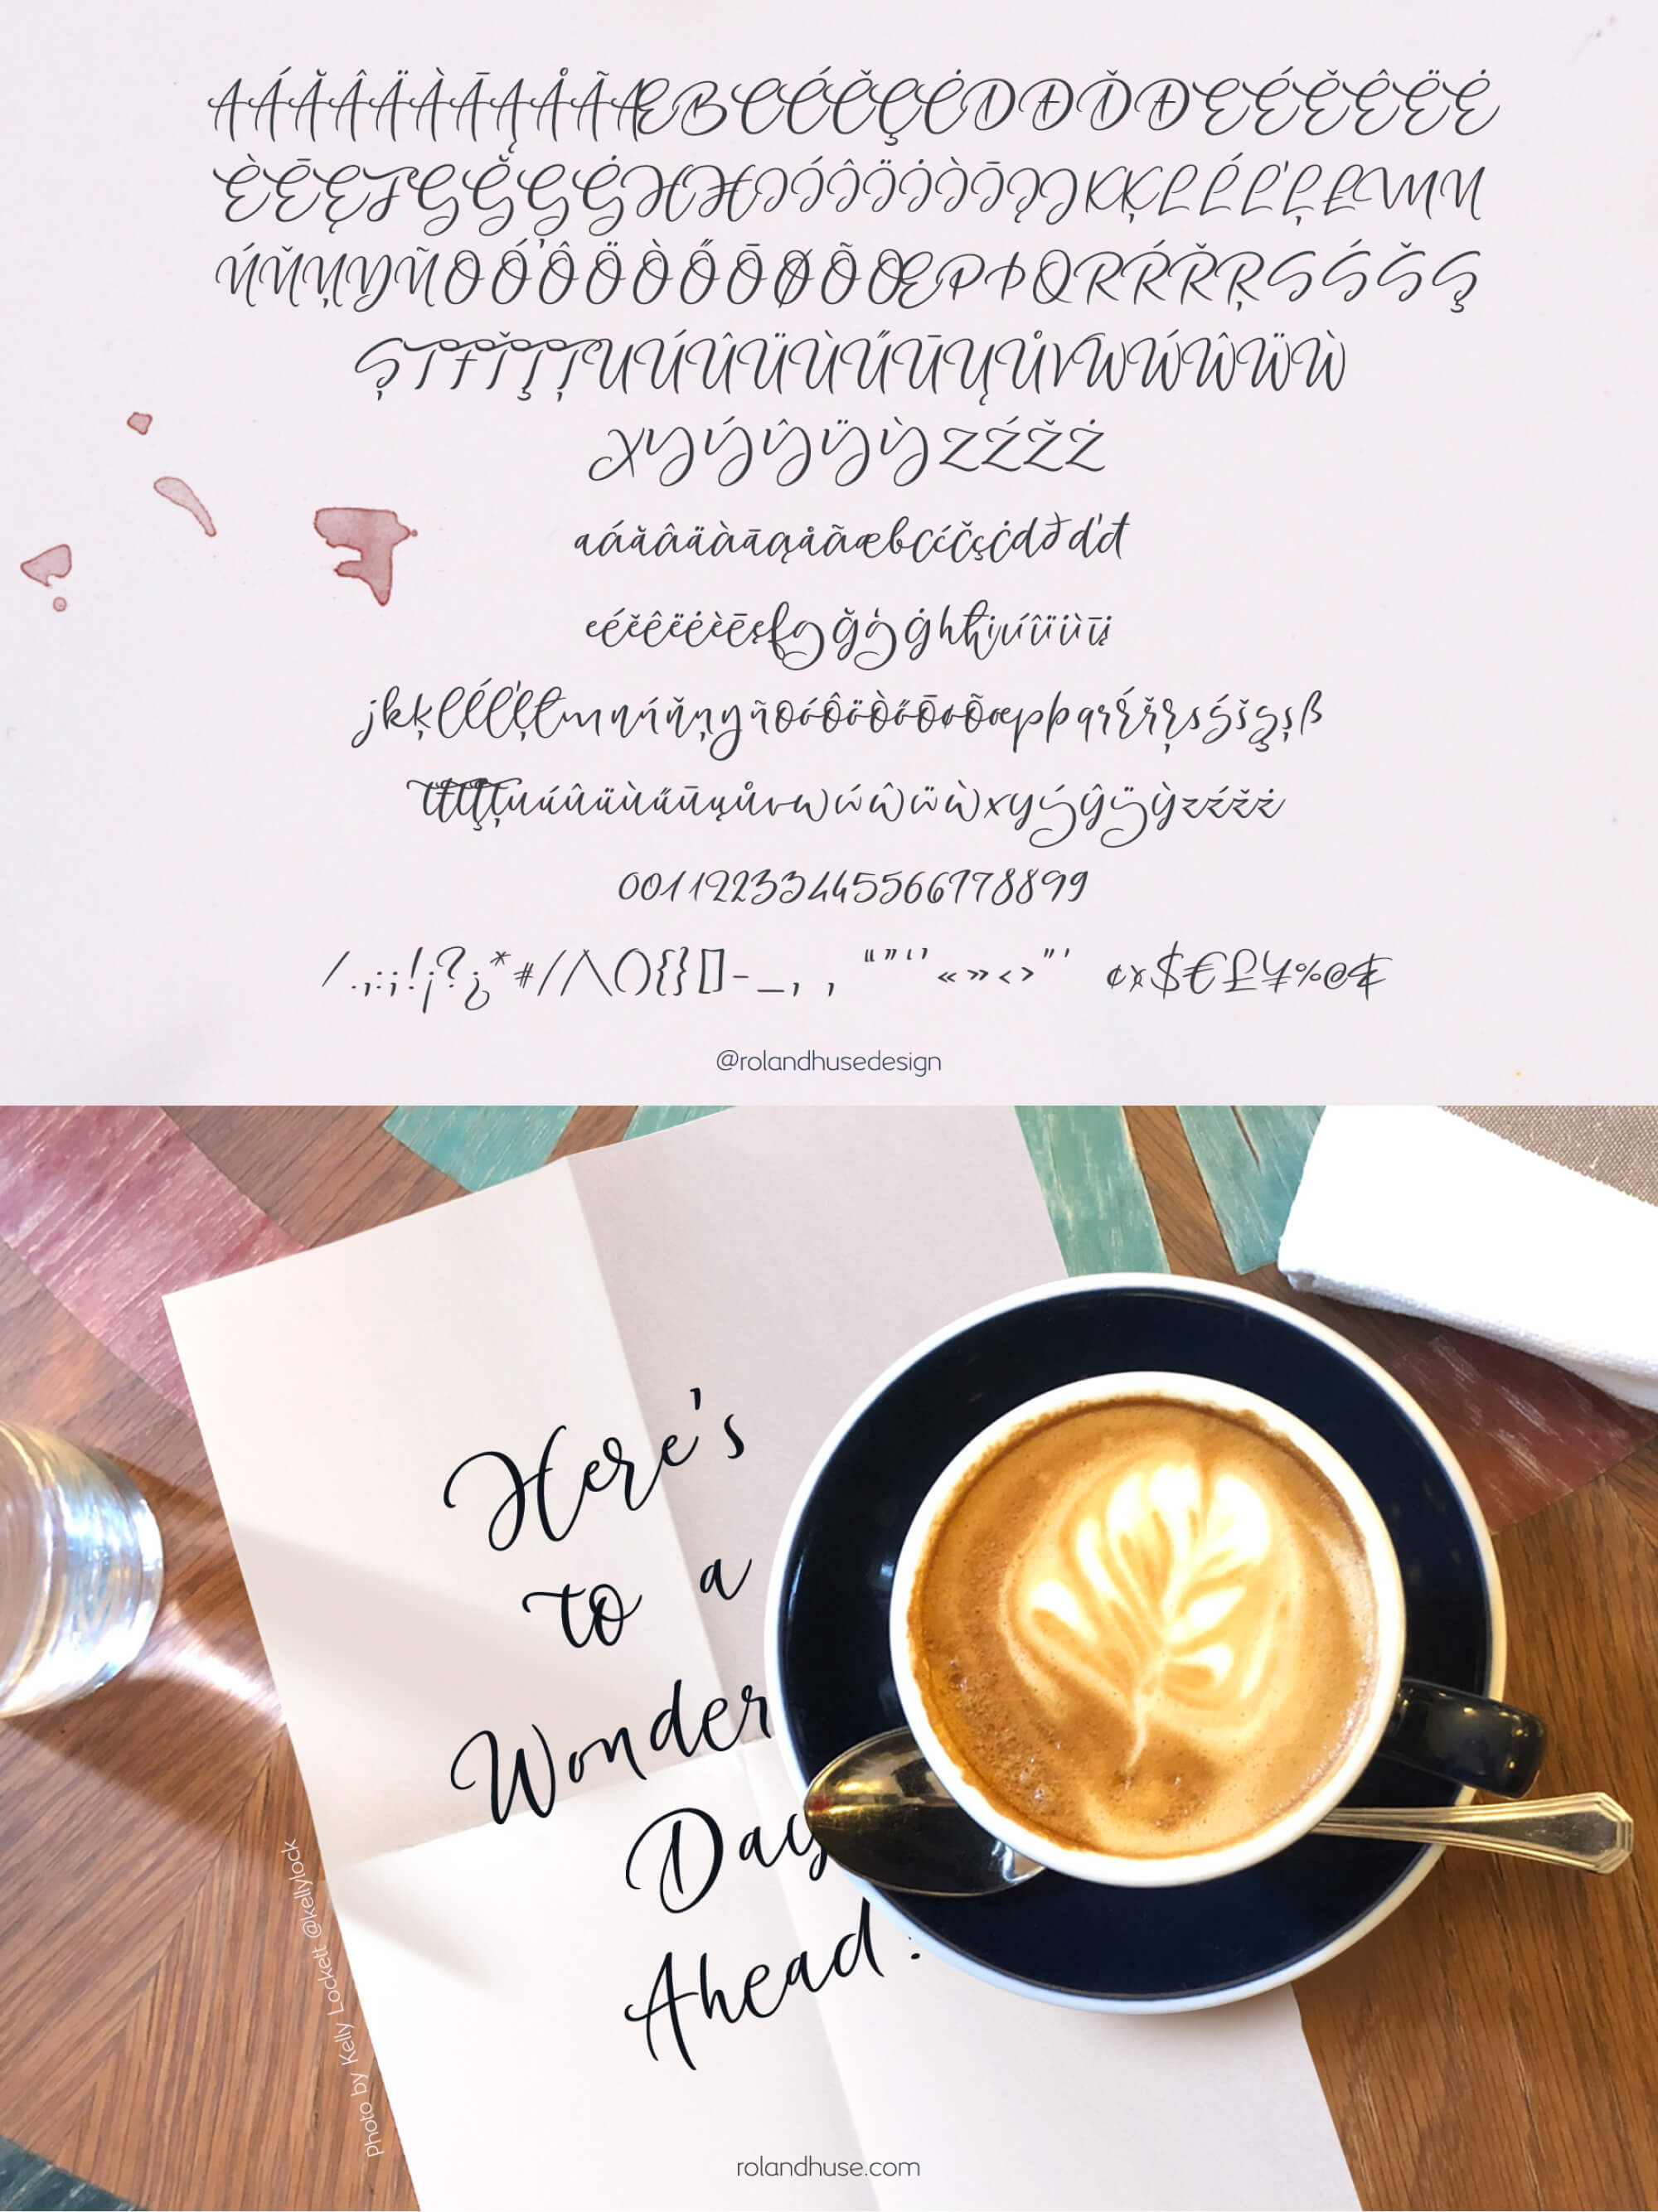 AÁĂÂÄÀĀĄÅÃÆBCĆČÇĊDÐĎĐEÉĚÊËĖ
ÈĒĘFGĞĢĠHĦIÍÎÏİÌĪĮJKĶLĹĽĻŁMN
ŃŇŅŊÑOÓÔÖÒŐŌØÕŒPÞQRŔŘŖSŚŠŞ
ȘTŦŤŢȚUÚÛÜÙŰŪŲŮVWẂŴẄẀ
XYÝŶŸỲZŹŽŻ
aáăâäàāąåãæbcćčçċdðďđ
eéěêëėèēęfgğģġhħiıíîïiìīį
jkķlĺľļłmnńňņŋñoóôöòőōøõœpþqrŕřŗsśšşșß
tŧťţțuúûüùűūųůvwẃŵẅẁxyýŷÿỳzźžż
00112233445566778899
/.,:;!¡?¿*#//\(){}[]-_‚ „ “”‘’«»<>"' ¢¤$€£¥%@&
@rolandhusedesign
Here's
to a
Wonder
Day
Ahead!
Photo by Kelly Lockett @kellylock
rolandhuse.com